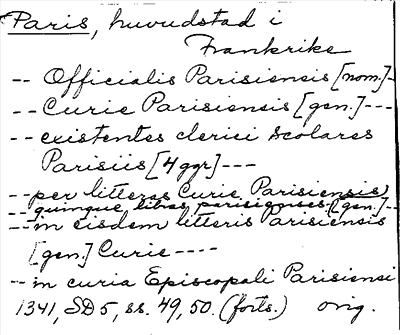 Paris, huvudstad i
Frankrike
-- Officialis Parisiensis [nom.]-
-- Curie Parisiensis [gen.]---
-- existentes clerici scolares
Parisiis [4 ggr]---
-- per litteras Curie Parisiensis)
-- quinque libras parisienses [gen.]--
-- in eisdem litteris Parisiensis
[gen.] Curie ----
-- in curia Episcopali Parisiensi
1341, SD 5, ss. 49, 50. (forts.) orig.